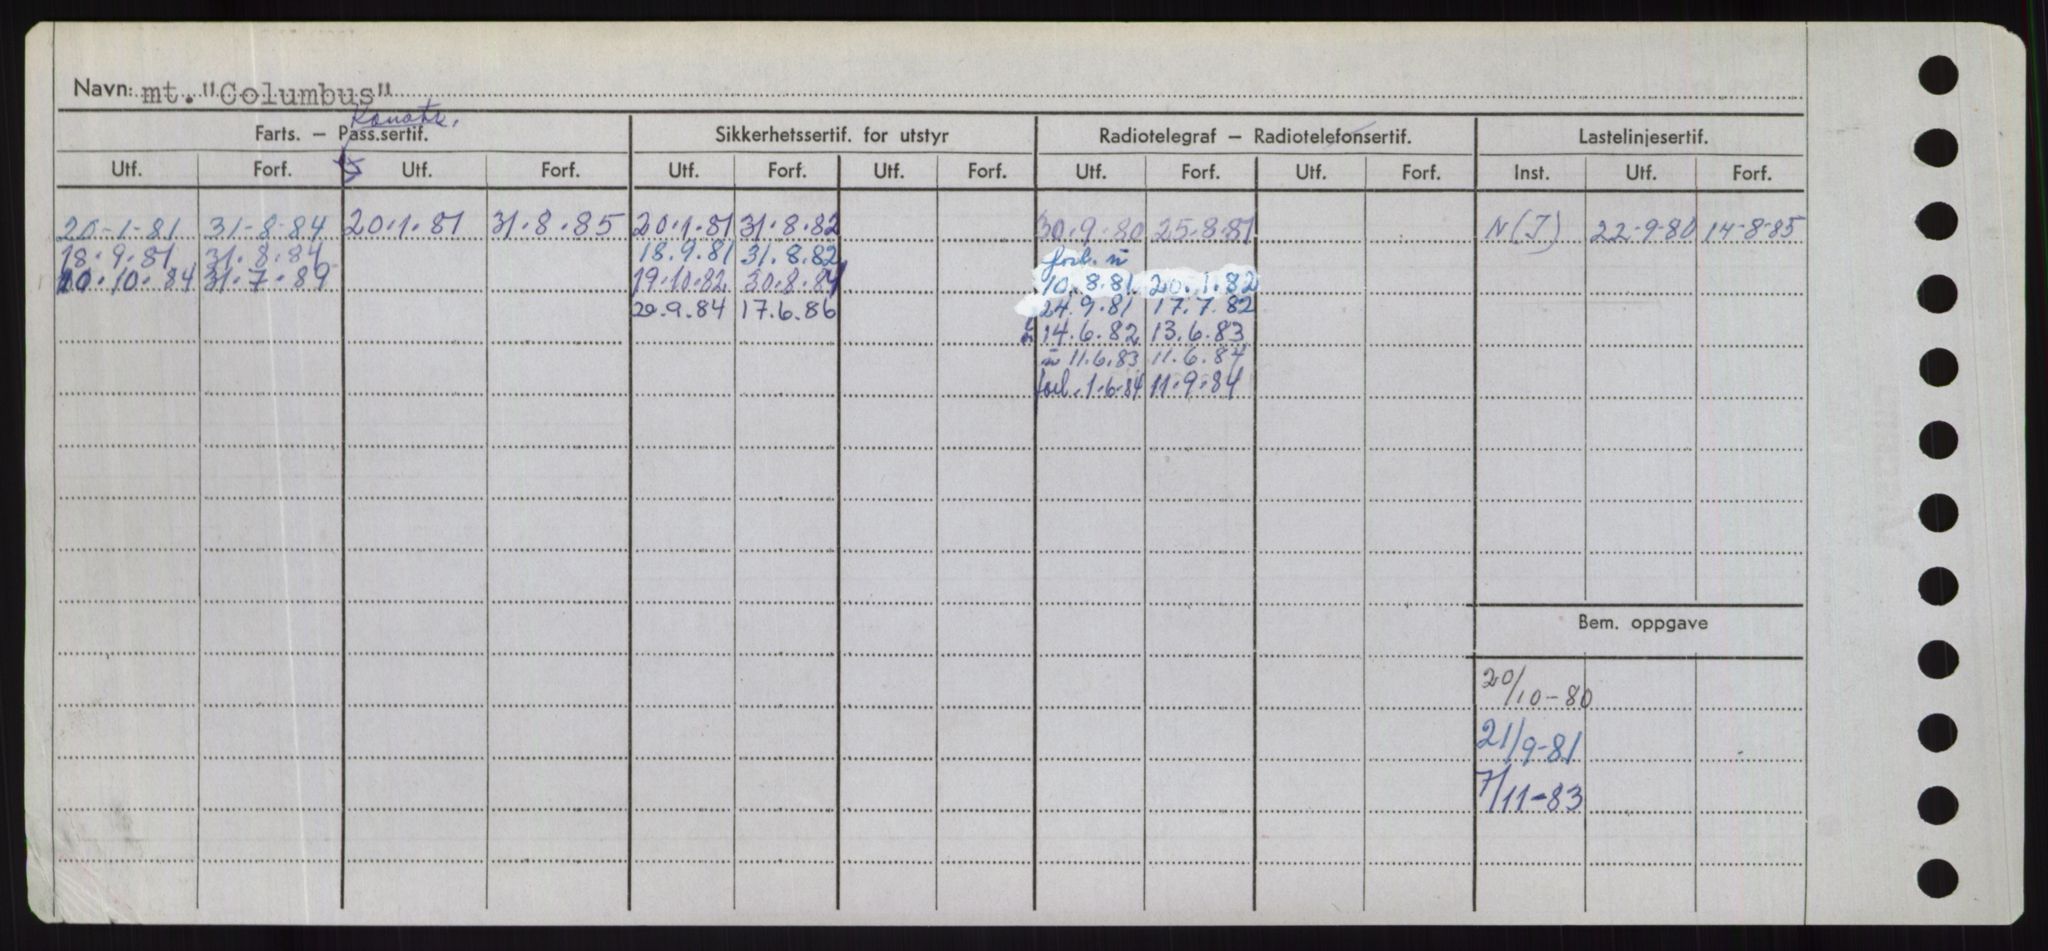 Navn: mt. "Columbus"
Farts. – Pass.sertif. Sikkerhetssertif. for utstyr Radiotelegraf – Radiotelefonsertif. Lastelinjesertif.
Utf. Forf. Utf. Forf. Utf. Forf. Utf. Forf. Utf. Forf. Utf. Forf. Inst. Utf. Forf.
20-1-81 31-8-84 20.1.81 31.8.85 20.1.81 31.8.82 30.9.80 25.8.81 N(I) 22-9-80 14-8-85
18.9.81 31.8.84 18.9.81 31.8.82 forl. n
10.10.84 31.7.89 19.10.82 30.8.84 10.8.81 20.1.82
20.9.84 17.6.86 24.9.81 17.7.82
14.6.82 13.6.83
n 11.6.83 11.6.84
forl. 1.6.84 11.9.84
Bem. oppgave
20/10-80
21/9-81
7/11-83